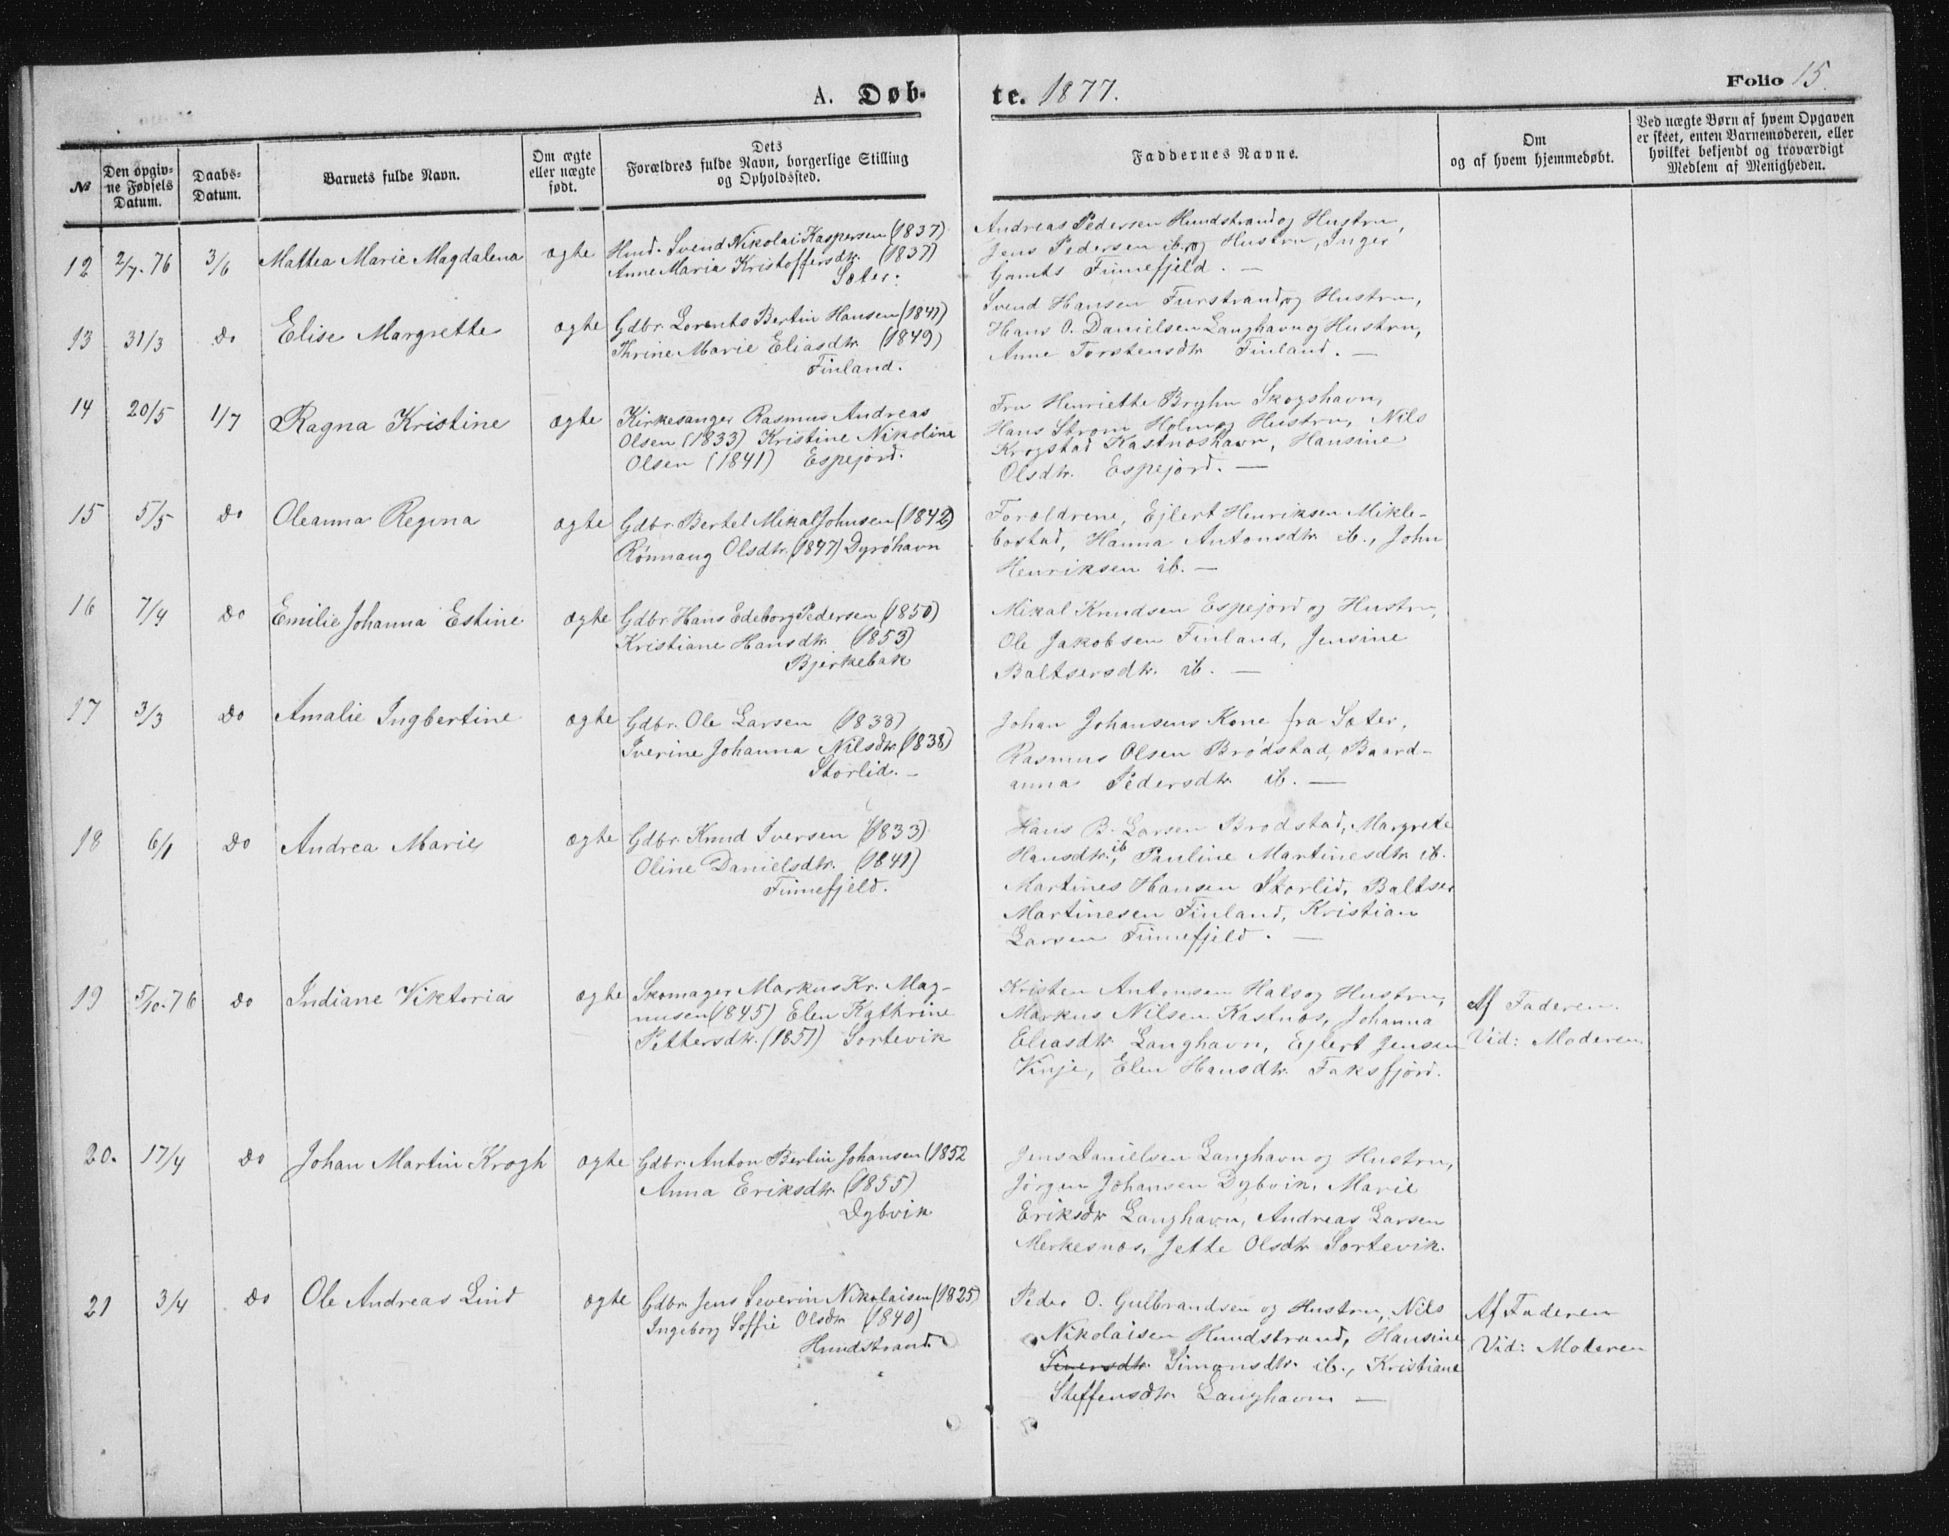 A. Døb-
te. 1877.
Folio 15.
№
Den opgiv-
ne Fødsels
Datum.
Daabs-
Datum.
Barnets fulde Navn.
Om ægte
eller uægte
født.
Dets
Forældres fulde Navn, borgerlige Stilling
og Opholdssted.
Faddernes Navne.
Om
og af hvem hjemmedøbt.
Ved uægte Børn af hvem Opgaven
er skeet, enten Barnemoderen, eller
hvilket bekjendt og troværdigt
Medlem af Menigheden.
12 2/7. 76 3/6 Mattea Marie Magdalena ægte
Hmd. Svend Nikolai Kaspersen (1837)
Anne Maria Kristoffersdtr. (1837)
Sæter.
Andreas Pedersen Hundstrand og Hustru,
Jens Pedersen ib. og Hustru, Inger
Finnefjeld. —
13 31/3 do Elise Margrette ægte
Gdbr. Lorents Bertin Hansen (1847)
Thrine Marie Eliasdtr. (1849)
Finland.
Svend Hansen Furstrand og Hustru,
Hans O. Danielsen Langhavn og Hustru,
Anne Torstensdtr. Finland. —
14 20/5 1/7 Ragna Kristine ægte
Kirkesanger Rasmus Andreas
Olsen (1833) Kristine Nikoline
Olsen (1841) Espejord.
Fru Henriette Bryhn Skogshavn,
Hans Strøm Holm og Hustru, Nils
Krogstad Kastneshavn, Hansine
Olsdtr. Espejord. —
15 5/5 do Oleanna Regina ægte
Gdbr. Bertel Mikal Johnsen (1842)
Rønnaug Olsdtr. (1847) Dyrøhavn
Forældrene, Ejlert Henriksen Mikle-
bostad, Hanna Antonsdtr. ib., John
Henriksen ib. —
16 7/4 do Emilie Johanna Estine ægte
Gdbr. Hans Edeborg Pedersen (1850)
Kristiane Hansdtr. (1853)
Bjerkebak
Mikal Knudsen Espejord og Hustru,
Ole Jakobsen Finland, Jensine
Baltsersdtr. ib. —
17 3/3 do Amalie Ingbertine ægte
Gdbr. Ole Larsen (1838)
Iverine Johanna Nilsdtr. (1838)
Storlid. —
Johan Johansens Kone fra Sæter,
Rasmus Olsen Brødstad, Baard-
anna Pedersdtr. ib. —
18 6/1 do Andrea Marie ægte
Gdbr. Knud Iversen (1833)
Oline Danielsdtr. (1841)
Finnefjeld.
Hans B. Larsen Brødstad, Margrete
Hansdtr. ib, Pauline Martinesdtr. ib.
Martines Hansen Storlid, Baltser
Martinesen Finland, Kristian
Larsen Finnefjeld. —
19 5/10. 76 do Indiane Viktoria ægte
Skomager Markus Kr. Mag-
nusen (1845) Elen Kathrine
Pettersdtr. (1851) Sortevik
Kristen Antonsen Hals og Hustru,
Markus Nilsen Kastnæs, Johanna
Eliasdtr. Langhavn, Ejlert Jensen
Vinje, Elen Hansdtr. Faksfjord.
Af Faderen.
Vid: Moderen
20. 17/4 do Johan Martin Krogh ægte
Gdbr. Anton Bertin Johansen (1852
Anna Eriksdtr. (1855)
Dybvik
Jens Danielsen Langhavn og Hustru,
Jørgen Johansen Dybvik, Marie
Eriksdtr. Langhavn, Andreas Larsen
Merkesnæs, Jette Olsdtr. Sortevik.
21 3/4 do Ole Andreas Lind ægte
Gdbr. Jens Severin Nikolaisen (1825)
Ingeborg Soffie Olsdtr. (1840)
Hundstrand
Peder O. Gulbrandsen og Hustru, Nils
Nikolaisen Hundstrand, Hansine
Simonsdtr. ib., Kristiane
Steffensdtr. Langhavn —
Af Faderen
Vid: Moderen